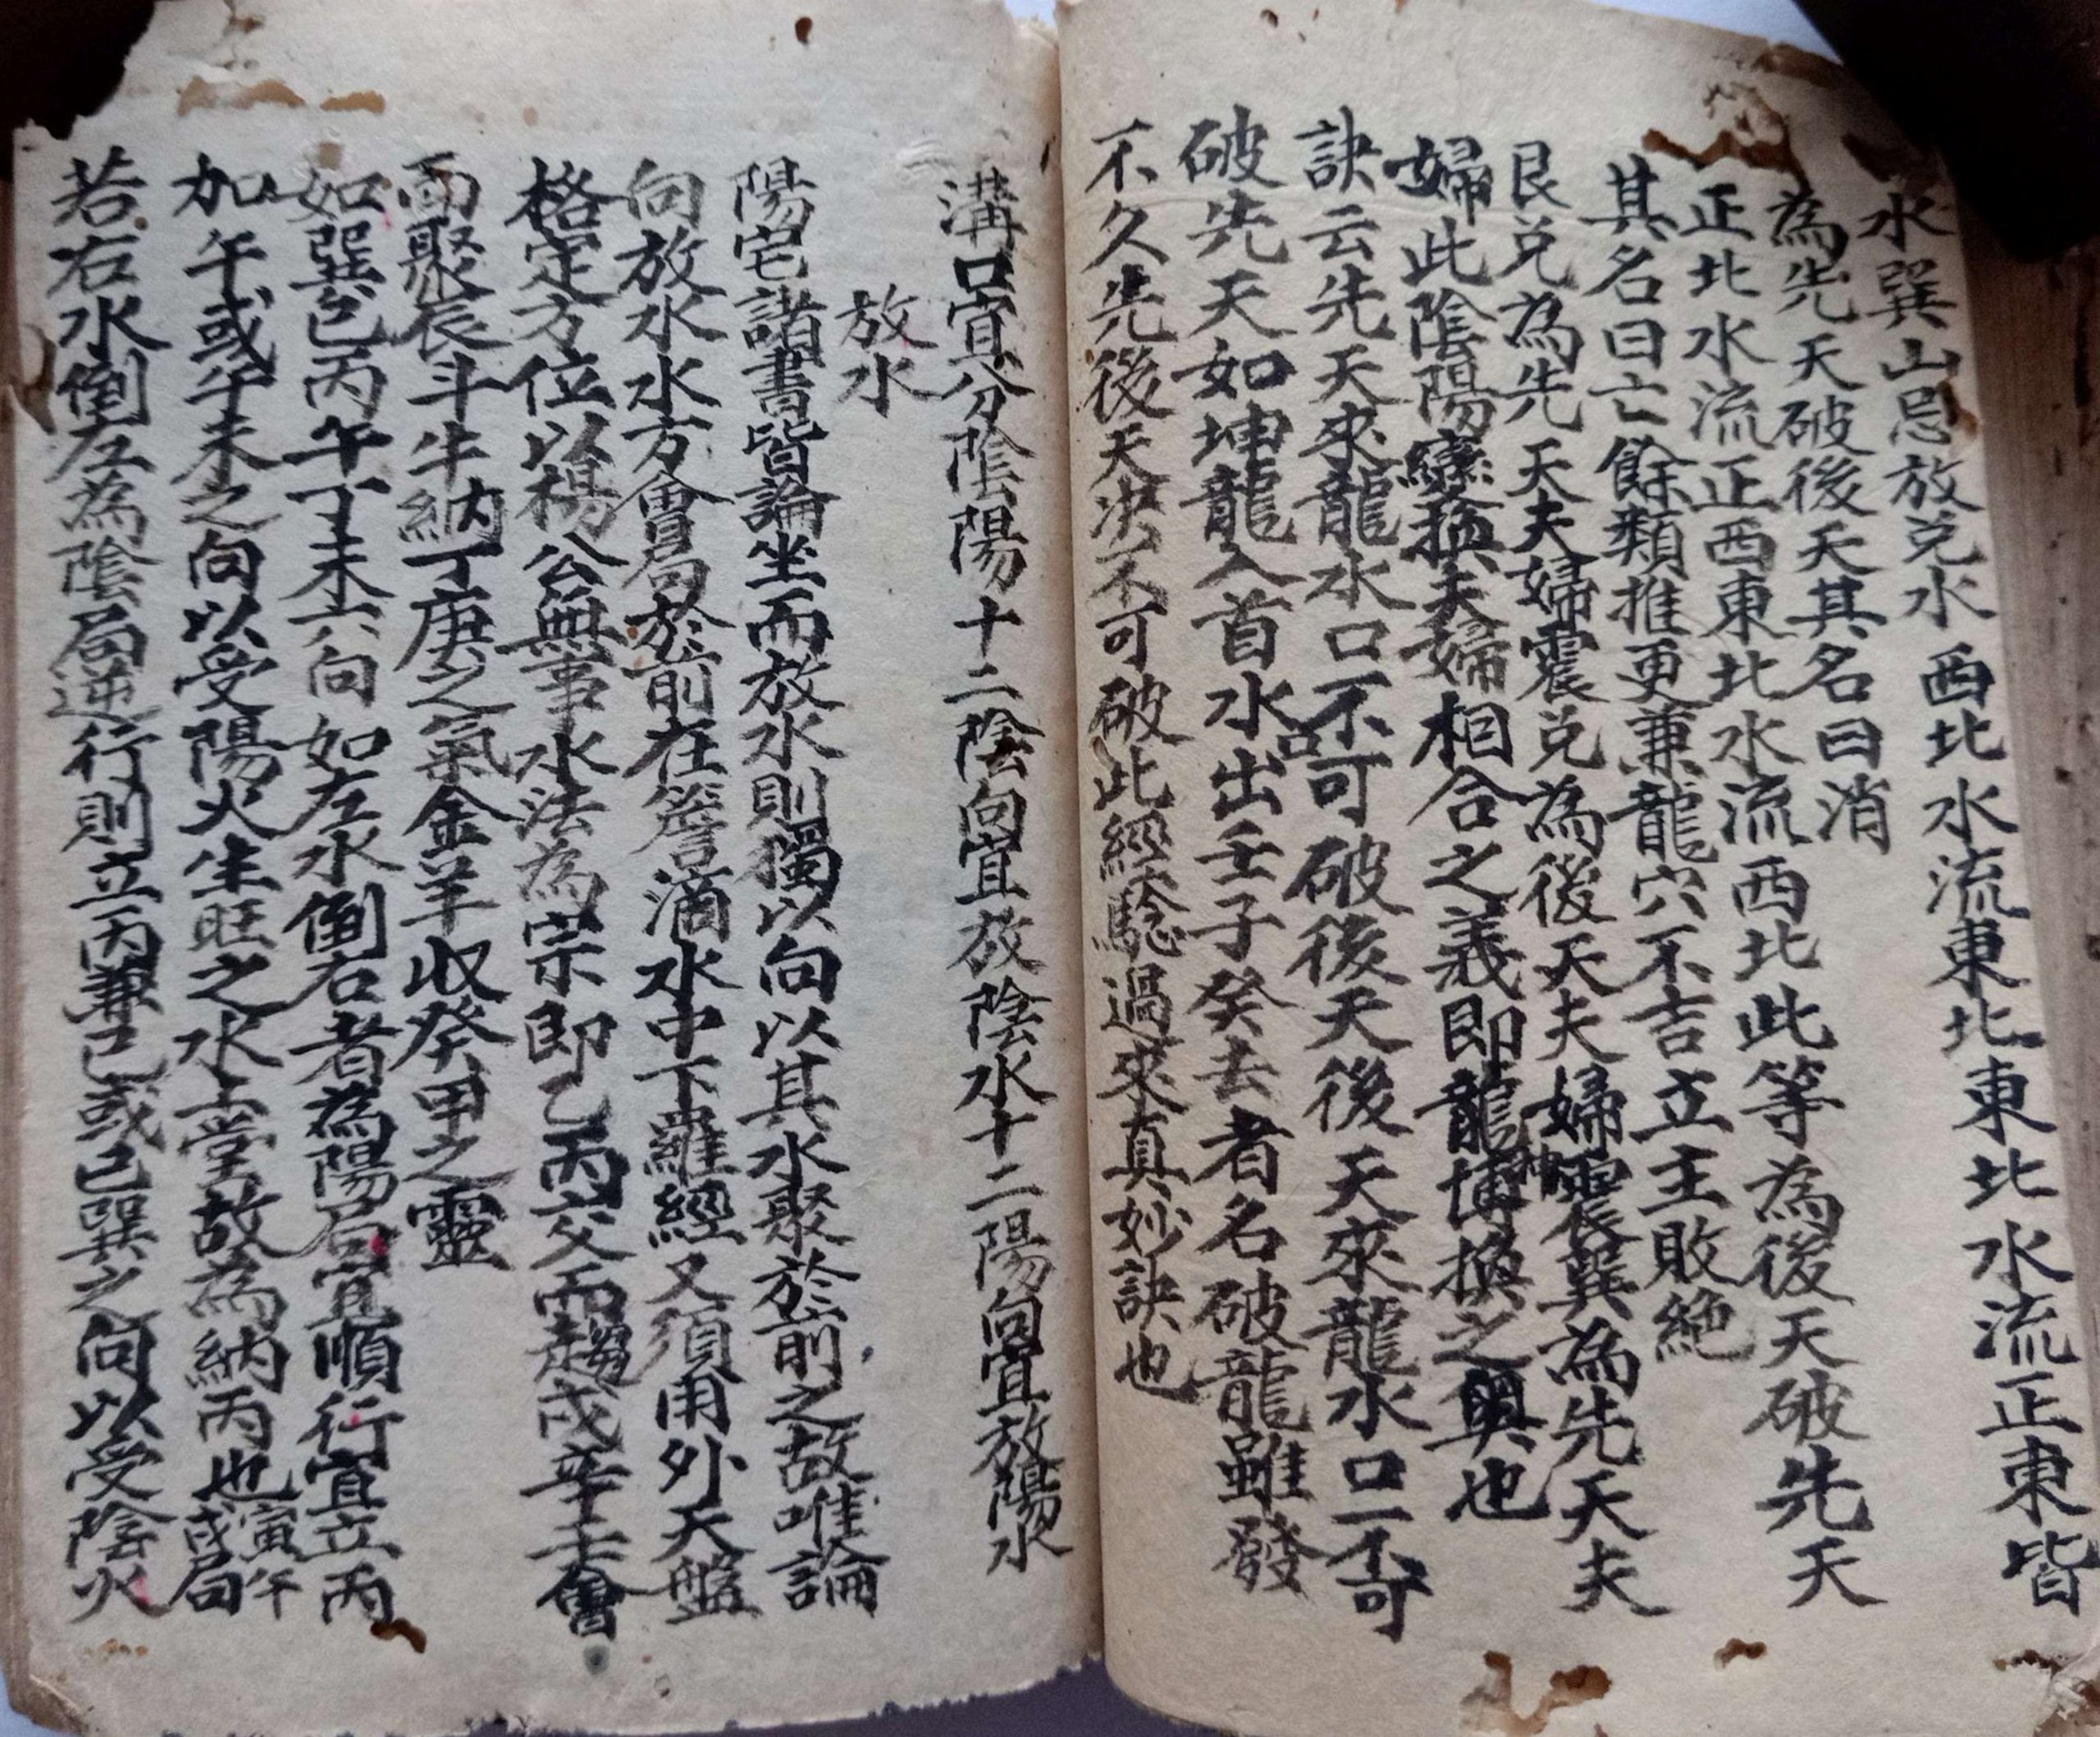 水巽山忌放兌水 西北水流東北東北水流正東皆
為先天破後天其名曰消
正北水流正西東北水流西北此等為後天破先天
其名曰亡餘類推更兼龍穴不吉立主敗絕
艮兌為先天夫婦震兌為後天夫婦震巽為先天夫
婦此陰陽變換夫婦相合之義即龍神博換之奧也
訣云先天來龍水口不可破後天後天來龍水口不可
破先天如坤龍入首水出壬子癸去者名破龍雖發
不久先後天決不可破此經驗過來真妙訣也
溝口宜分陰陽十二陰向宜放陰水十二陽向宜放陽水
放水
陽宅諸書皆論坐而放水則獨以向以其水聚於前之故唯論
向放水水方會局於前在簷滴水中下羅經又須用外天盤
格定方位以楊公無事水法為宗即乙丙交而趨戌辛壬會
而聚辰斗牛納丁庚之氣金羊收癸甲之靈
如巽巳丙午丁未六向如左水倒右者為陽局宜順行宜立丙
加午或午未之向以受陽火生旺之水上堂故為納丙也寅午戌局
若右水倒左為陰局逆行則立丙兼巳或巳巽之向以受陰火